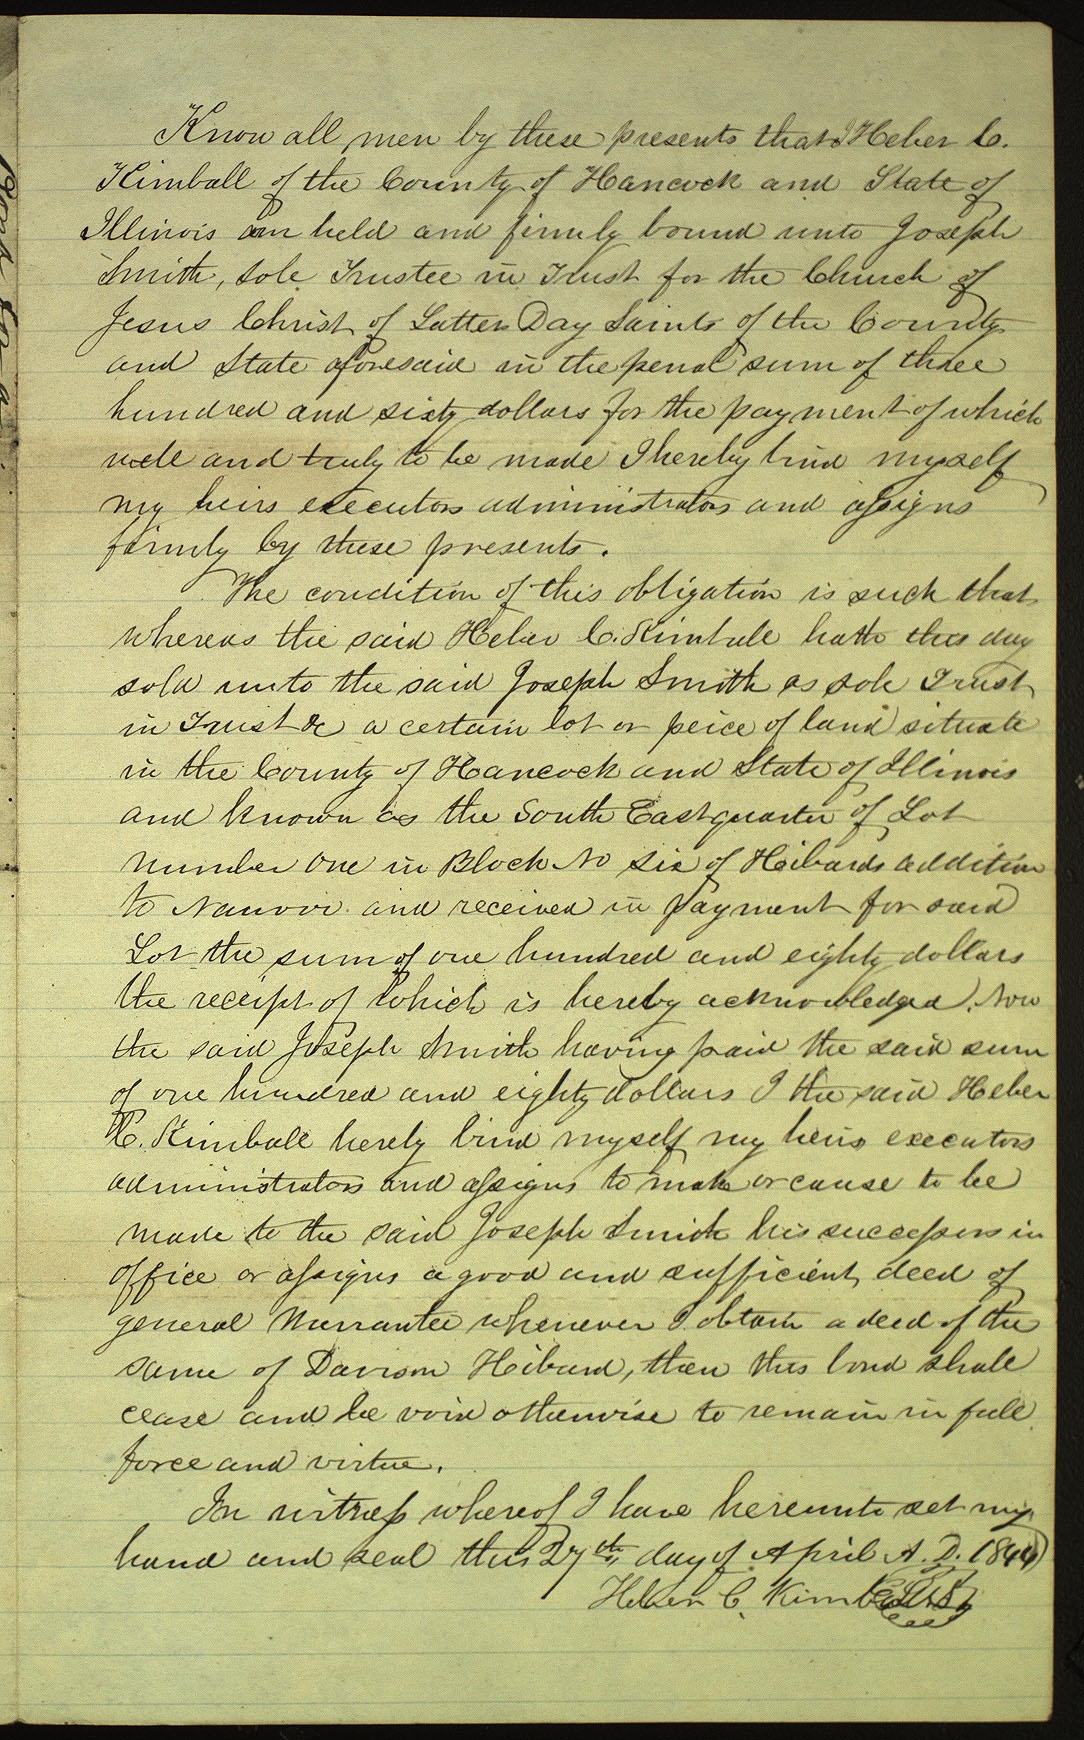 Know all men by these presents that I Heber C.
Kimball of the County of Hancock and State of
Illinois am held and firmly bound unto Joseph
Smith, sole Trustee in Trust for the Church of
Jesus Christ of Latter Day Saints of the County
and State aforesaid in the penal sum of three
hundred and sixty dollars for the payment of which
well and truly to be made I hereby bind myself
my heirs executors administrators and assigns
firmly by these presents.
The condition of this obligation is such that
whereas the said Heber C. Kimball hath this day
sold unto the said Joseph Smith as sole Trust
in Trust &c a certain lot or peice of land situate
in the County of Hancock and State of Illinois
and known as the South East quarter of Lot
number one in Block No six of Hibards addition
to Nauvoo and received in payment for said
Lot the sum of one hundred and eighty dollars
the receipt of which is hereby acknowledged. Now
the said Joseph Smith having paid the said sum
of one hundred and eighty dollars I the said Heber
C. Kimball herely bind myself my heirs executors
administrators and assigns to make or cause to be
made to the said Joseph Smith his successors in
office or assigns a good and sufficient deed of
general Warrantee whenever I obtain a deed of the
same of Davison Hibard, then this bond shall
cease and be void otherwise to remain in full
force and virtue.
In witness whereof I have hereunto set my
hand and seal this 27th day of April A. D. 1844
Heber C. Kimball